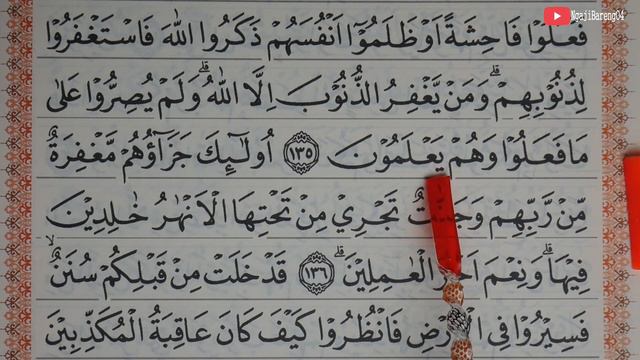 NgajiBareng04
فَعَلُوْا فَاحِشَةً اَوْ ظَلَمُوْٓا اَنْفُسَهُمْ ذَكَرُوا اللّٰهَ فَاسْتَغْفَرُوْا
لِذُنُوْبِهِمْۗ وَمَنْ يَّغْفِرُ الذُّنُوْبَ اِلَّا اللّٰهُ ۗ وَلَمْ يُصِرُّوْا عَلٰى
مَا فَعَلُوْا وَهُمْ يَعْلَمُوْنَ ١٣٥ اُولٰۤىِٕكَ جَزَاۤؤُهُمْ مَّغْفِرَةٌ
مِّنْ رَّبِّهِمْ وَجَنّٰتٌ تَجْرِيْ مِنْ تَحْتِهَا الْاَنْهٰرُ خٰلِدِيْنَ
فِيْهَاۗ وَنِعْمَ اَجْرُ الْعٰمِلِيْنَۗ ١٣٦ قَدْ خَلَتْ مِنْ قَبْلِكُمْ سُنَنٌۙ
فَسِيْرُوْا فِى الْاَرْضِ فَانْظُرُوْا كَيْفَ كَانَ عَاقِبَةُ الْمُكَذِّبِيْنَ